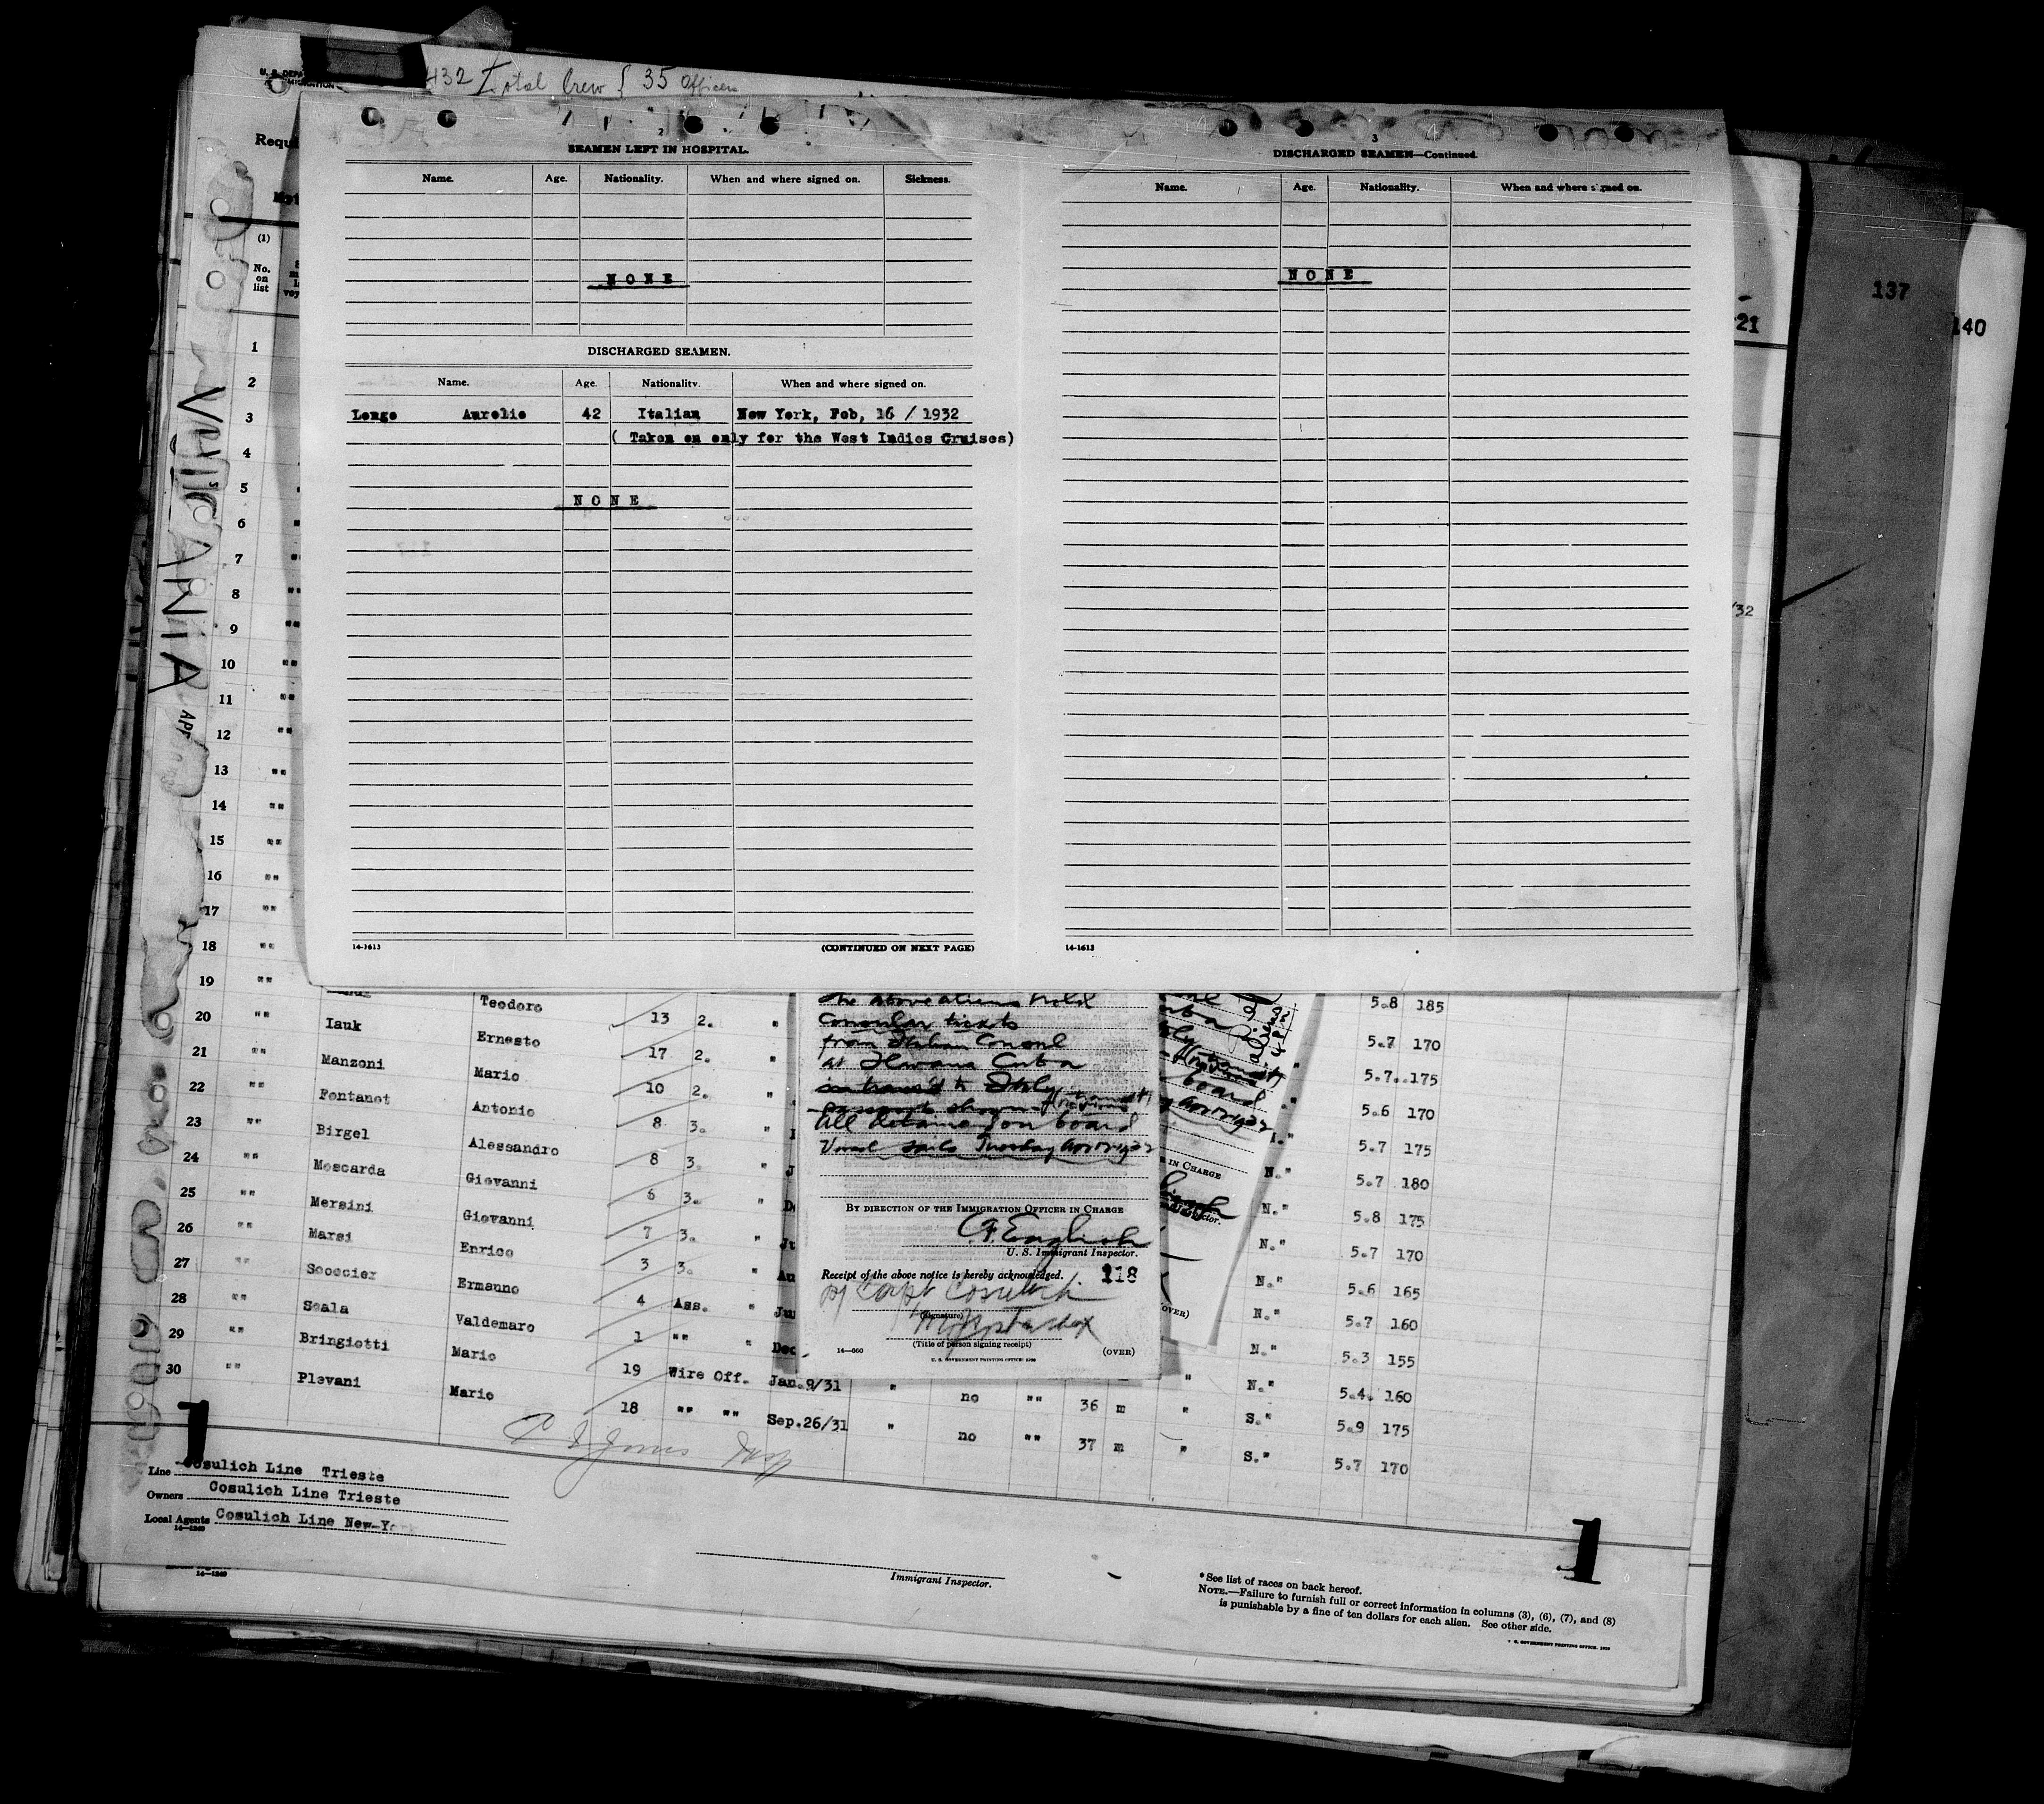 432 Total Crew { 35 Officers
2
SEAMEN LEFT IN HOSPITAL.
Name. Age. Nationality. When and where signed on. Sickness.
NONE
DISCHARGED SEAMEN.
Name. Age. Nationality. When and where signed on.
Longo Aurelio 42 Italian New York, Feb, 16 / 1932
( Taken on only for the West Indies Cruises)
NONE
14-1613 (CONTINUED ON NEXT PAGE)
3
DISCHARGED SEAMEN—Continued.
Name. Age. Nationality. When and where signed on.
NONE
14-1613
137
140
21
/32
VULCANIA
(1)
No.
on
list
1
2
3
4
5
6
7
8
9
10
11
12
13
14
15
16
17
18
19 "" Teodoro 13 2. " 5.8 185
20 "" Iauk Ernesto 17 2. " 5.7 170
21 "" Manzoni Mario 10 2. " 5.7 175
22 "" Fontanot Antonio 8 3. " 5.6 170
23 "" Birgel Alessandro 8 3. " 5.7 175
24 "" Moscarda Giovanni 6 3. " N." 5.7 180
25 "" Mersini Giovanni 7 3. " N." 5.8 175
26 "" Marsi Enrico 3 3. " N." 5.7 170
27 "" Sooccier Ermanno 4 Ass. " N." 5.6 165
28 "" Scala Valdemaro 1 "" " N." 5.7 160
29 "" Bringiotti Mario 19 Wire Off. Jan.9/31 " no "" 36 m " S." 5.9 175
30 "" Plevani Mario 18 "" "" Sep.26/31 " no "" 37 m " S." 5.7 170
the above aliens hold
Consular tickets
from Italian Consul
at Havana Cuba
in transit to Italy
All detained on board
Vessel sails Tuesday
BY DIRECTION OF THE IMMIGRATION OFFICER IN CHARGE
C.F. English
U. S. Immigrant Inspector.
Receipt of the above notice is hereby acknowledged. 118
Capt Cosulich
(Signature)
(Title of person signing receipt)
14—660 (OVER)
U. S. GOVERNMENT PRINTING OFFICE: 1930
IN CHARGE
(OVER)
1
1
Line Cosulich Line Trieste
Owners Cosulich Line Trieste
Local Agents Cosulich Line New-York
14—1240
14—1240
Immigrant Inspector.
* See list of races on back hereof.
NOTE.—Failure to furnish full or correct information in columns (3), (6), (7), and (8)
is punishable by a fine of ten dollars for each alien. See other side.